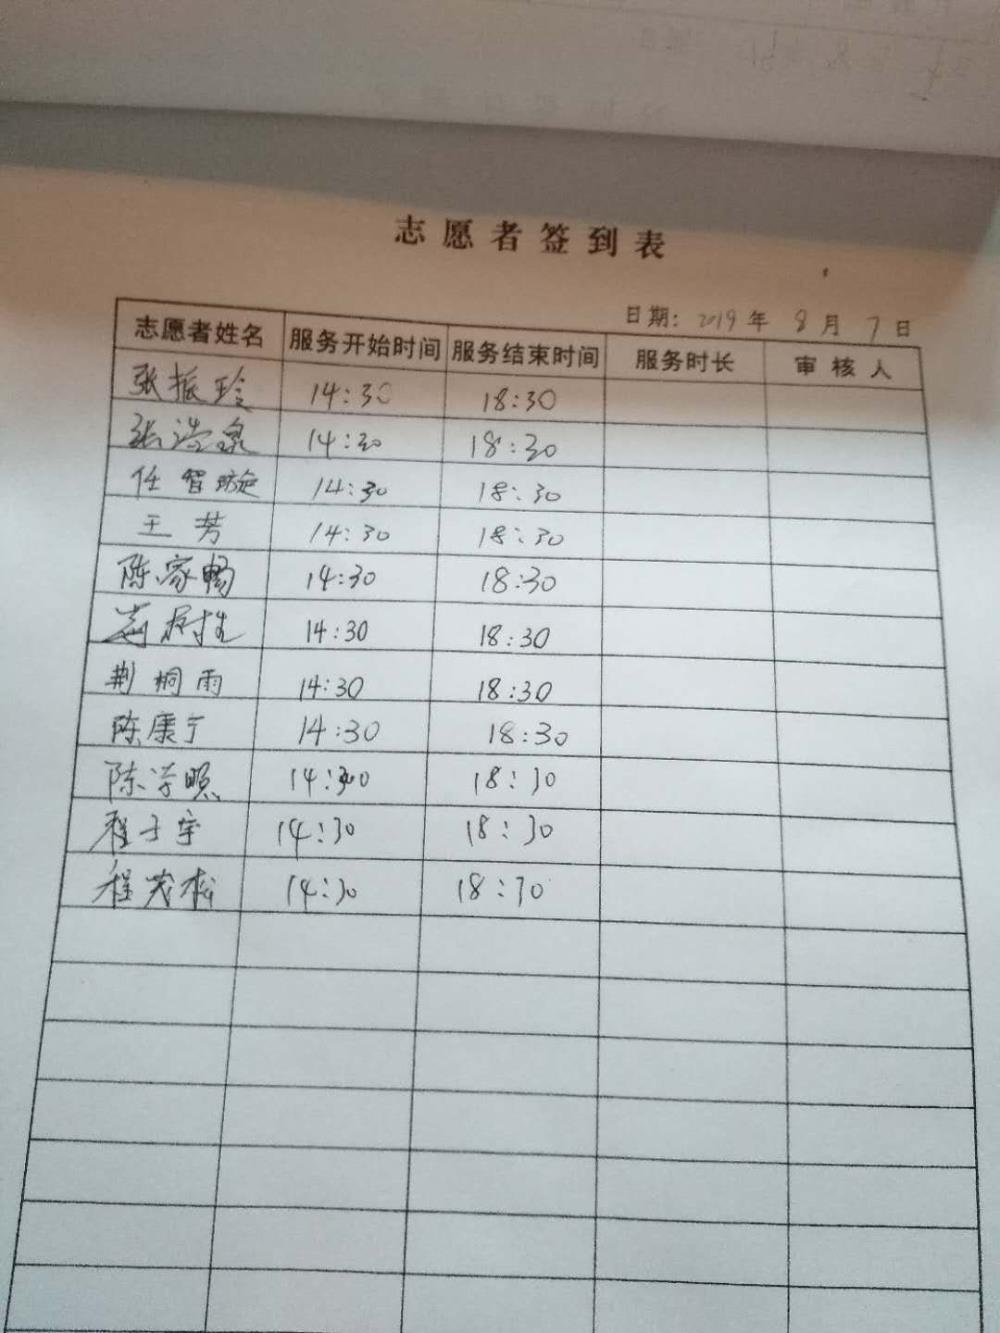 志愿者签到表
日期：2019年 8月 7日
志愿者姓名 服务开始时间 服务结束时间 服务时长 审核人
张振玲 14:30 18:30
张浩泉 14:30 18:30
任智璇 14:30 18:30
王芳 14:30 18:30
陈家畅 14:30 18:30
14:30 18:30
荆桐雨 14:30 18:30
陈康宁 14:30 18:30
陈 照 14:30 18:30
程子宇 14:30 18:30
程 松 14:30 18:30